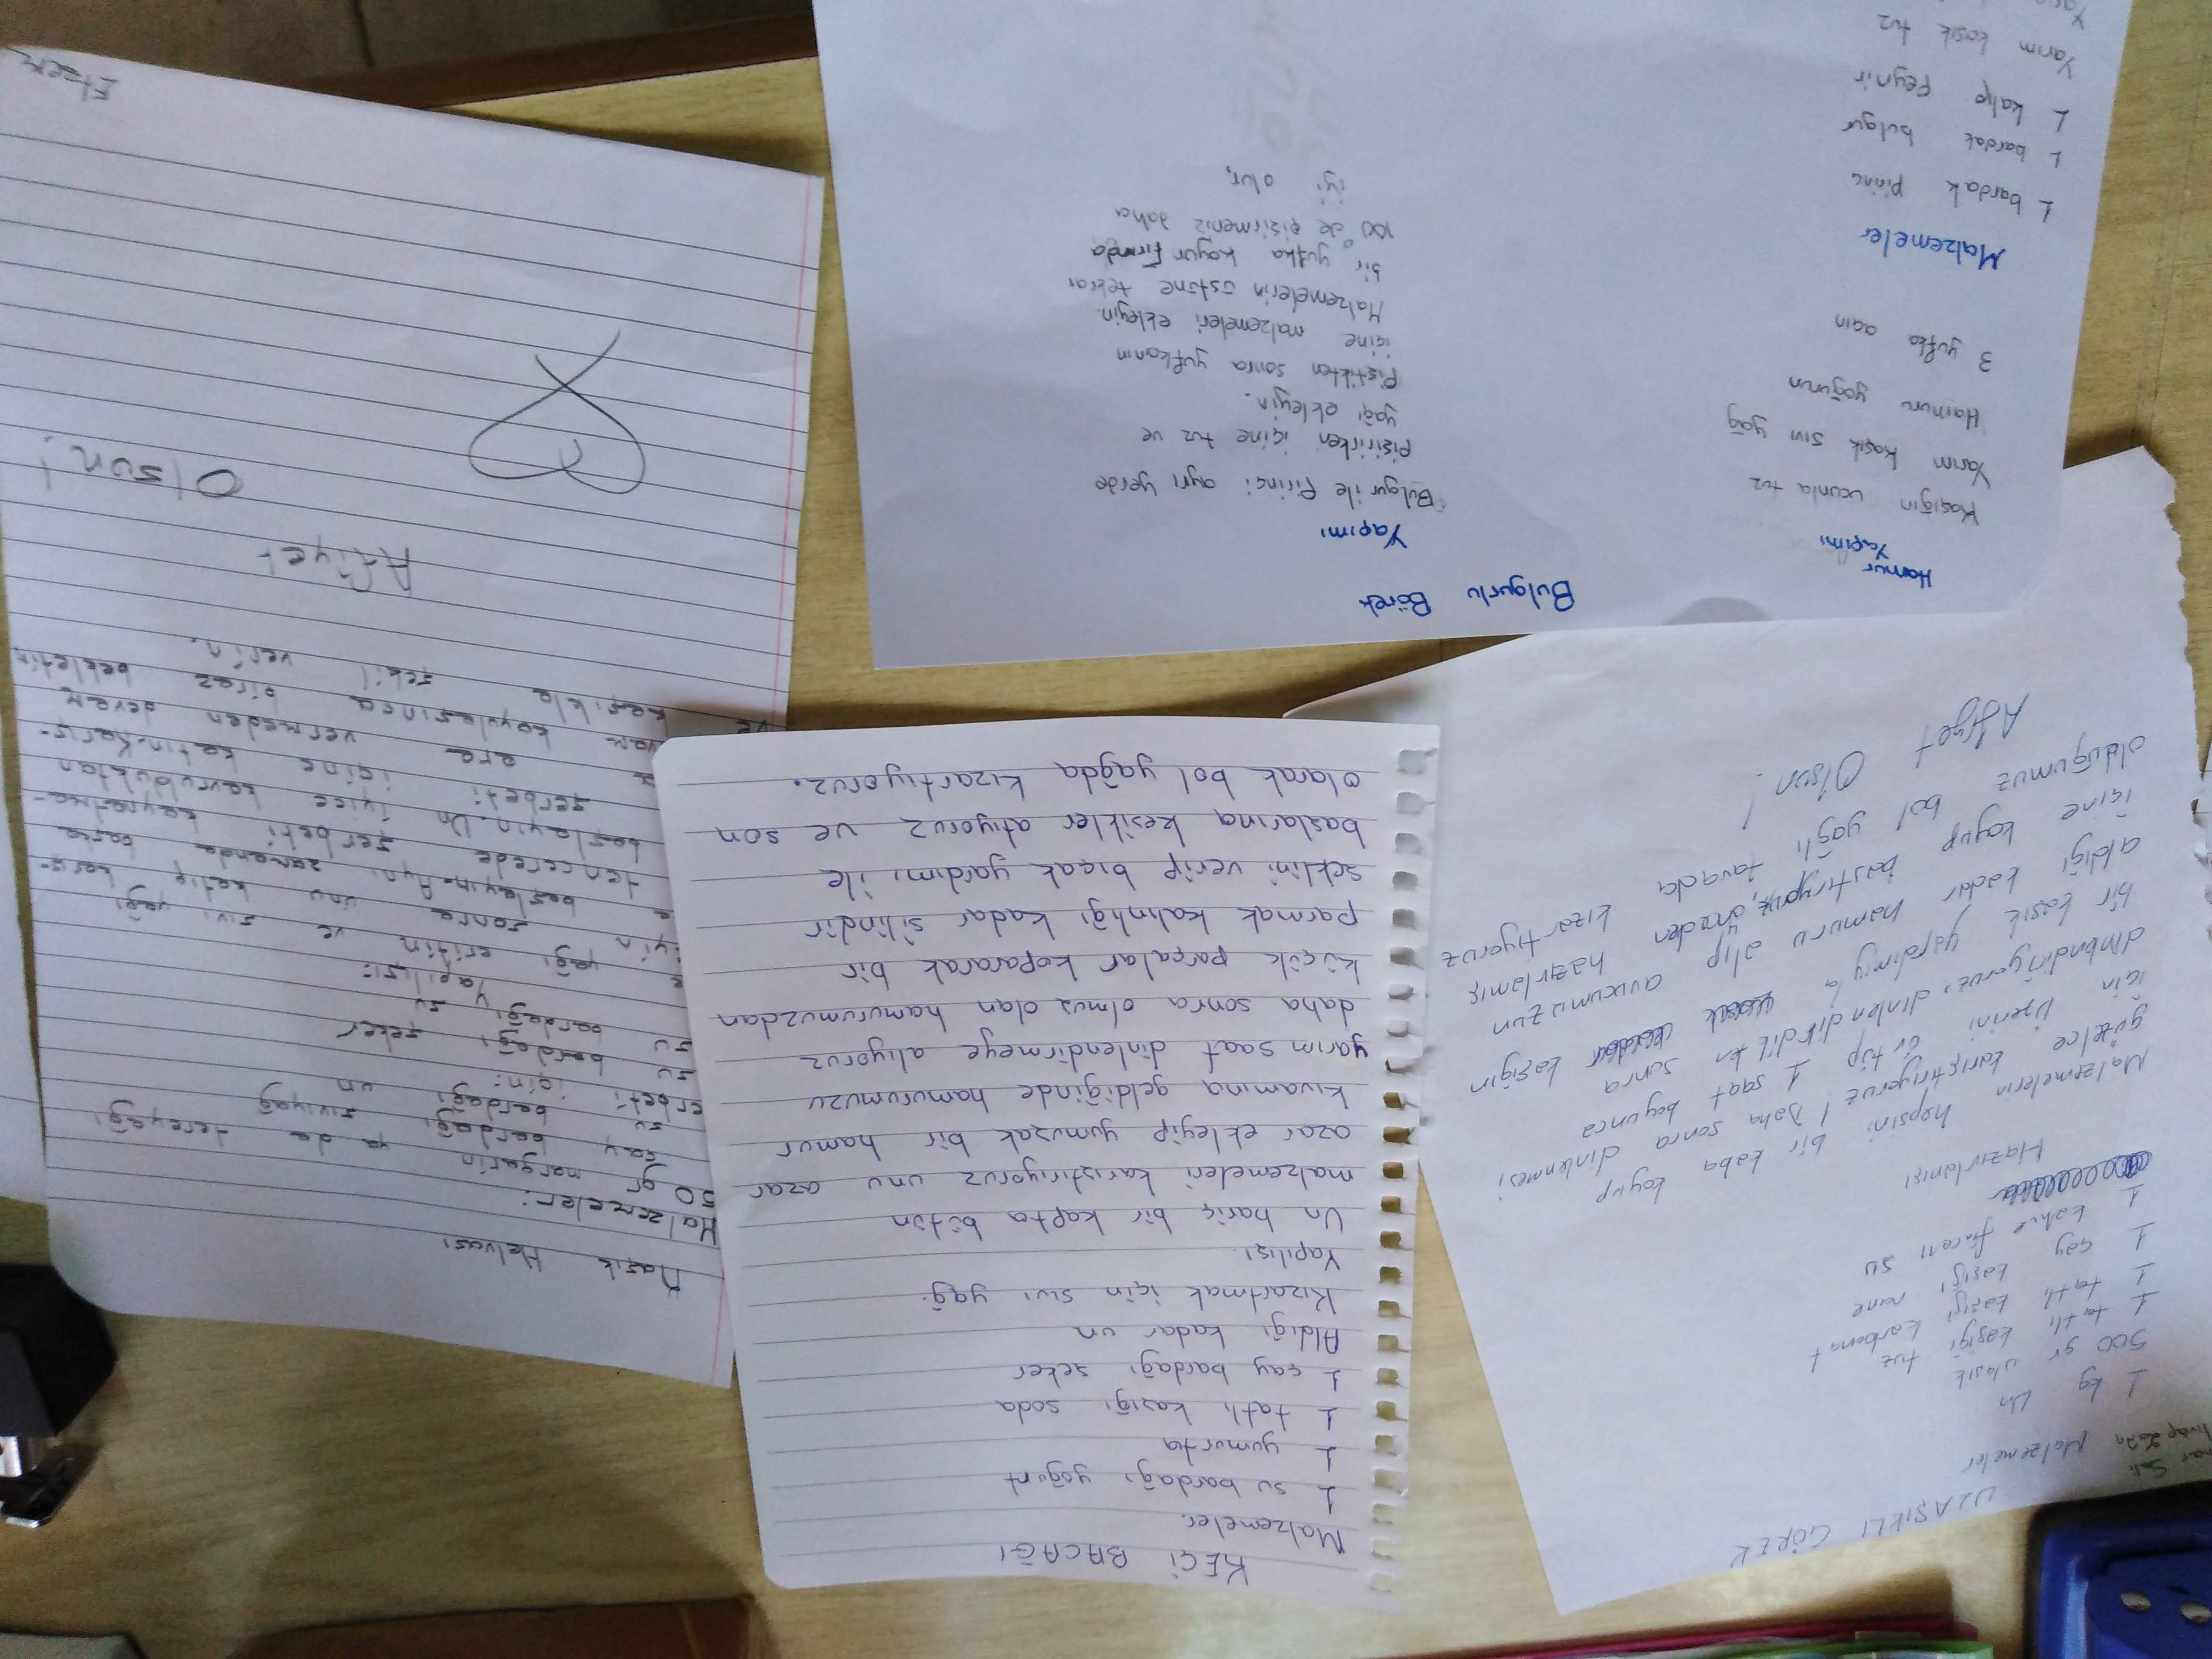 KEÇİ BACAĞI
Malzemeler.
1 su bardağı yoğurt
1 yumurta
1 tatlı kaşığı soda
1 çay bardağı şeker
Aldığı kadar un
Kızartmak için sıvı yağ.
Yapılışı
Un hariç bir kapta bütün
malzemeleri karıştırıyoruz unu azar
azar ekleyip yumuşak bir hamur
kıvamına geldiğinde hamurumuzu
yarım saat dinlendirmeye alıyoruz
daha sonra olmuş olan hamurumuzdan
küçük parçalar kopararak bir
parmak kalınlığı kadar silindir
şeklini verip bıçak yardımı ile
başlarına kesikler atıyoruz ve son
olarak bol yağda kızartıyoruz.
UZAŞIKLI ÇÖREK
Malzemeler
1 kg un
500 gr
1 tatlı kaşığı tuz
1 tatlı kaşığı karbonat
1 çay kaşığı nane
1 kahve fincanı su
Hazırlanışı
Malzemelerin hepsini bir kaba koyup
güzelce karıştırıyoruz! Daha sonra dinlenmesi
için üzerini örtüp 1 saat boyunca
dinlendiriyoruz, dinlendikten sonra
bir kaşık yardımıyla kaşığın
aldığı kadar hamuru alıp avucumuzun
içine koyup bastırıyoruz, önceden hazırlamış
olduğumuz bol yağlı tavada kızartıyoruz
Afiyet Olsun!
Kaşık Helvası
Malzemeler:
50 gr margarin ya da tereyağı
çay bardağı sıvıyağ
su bardağı un
erbeti için:
su bardağı şeker
su bardağı su
Yapılışı:
yağı eritin ve sıvı yağı
sonra unu katıp karış-
başlayın. Aynı zamanda başka
tencerede şerbeti kaynatma-
başlayın. Un iyice kavrulduktan
şerbeti içine katın. Karış-
ara vermeden devam
koyulaşınca biraz bekletin
ve kaşıkla şekil verin.
Afiyet
Olsun!
Bulgurlu Börek
Hamur
Yapımı
Kaşığın ucunla tuz
Yarım kaşık sıvı yağ
Hamuru yoğurun
3 yufka açın
Malzemeler
1 bardak pirinc
1 bardak bulgur
1 kalıp Peynir
Yarım kaşık tuz
Yapımı
Bulgur ile Pirinci ayrı yerde
Pişirirken içine tuz ve
yağı ekleyin.
Piştikten sonra yufkanın
içine malzemeleri ekleyin.
Malzemelerin üstüne tekrar
bir yufka koyun Fırında
100° de pişirmeniz daha
iyi olur.